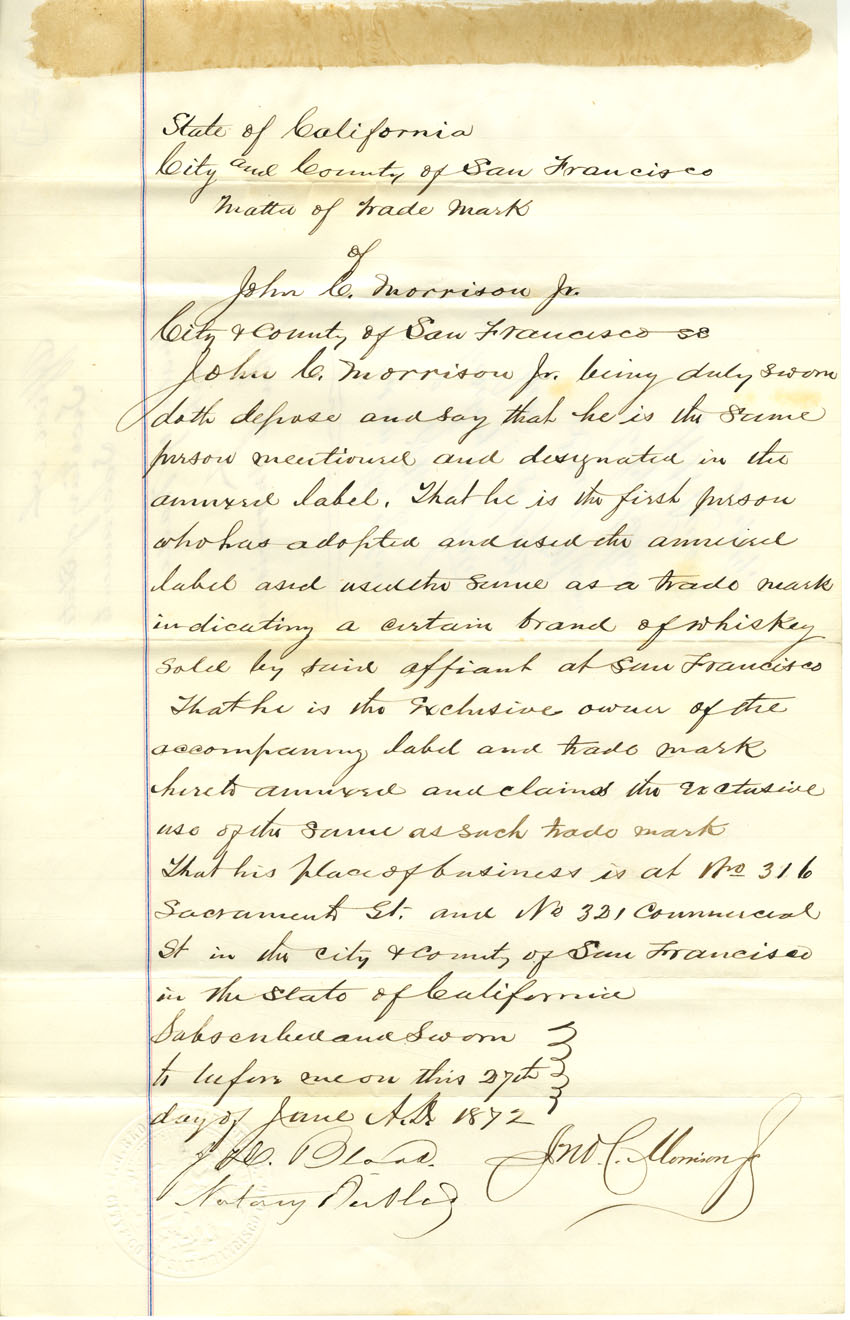 State of California
City and County of San Francisco
Matter of trade mark
of
John C. Morrison Jr.
City & County of San Francisco ss
John C. Morrison Jr. being duly sworn
doth depose and say that he is the same
person mentioned and designated in the
annexed label. That he is the first person
who has adopted and used the annexed
label and used the same as a trade mark
indicating a certain brand of whiskey
sold by said affiant at San Francisco
That he is the Exclusive owner of the
accompanning label and trade mark
hereto annexed and claims the exclusive
use of the same as such trade mark
That his place of business is at No 316
Sacramento St. and No 321 Commercial
St in the city & county of San Francisco
in the State of California
Subscribed and Sworn
to before me on this 27th
day of June A.D. 1872
Jno. C. Morrison Jr
Notary Public